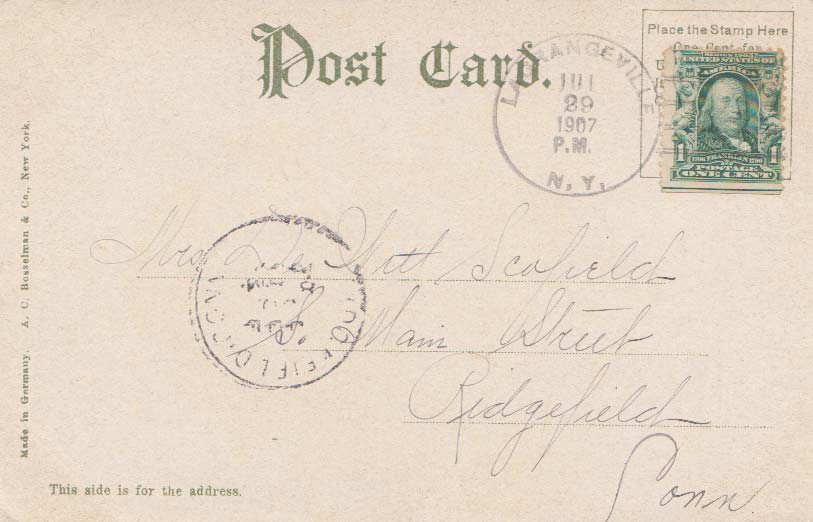 Post Card.
Place the Stamp Here
One Cent for
LAGRANGEVILLE
JUL
29
1907
P.M.
N. Y.
SERIES 1902
UNITED STATES OF
AMERICA
1 FRANKLIN 1
POSTAGE
ONE CENT
Mrs. De Witt Scofield
S. Main Street
Ridgefield
Conn.
RIDGEFIELD, CONN.
Made in Germany. A. C. Bosselman & Co., New York.
This side is for the address.